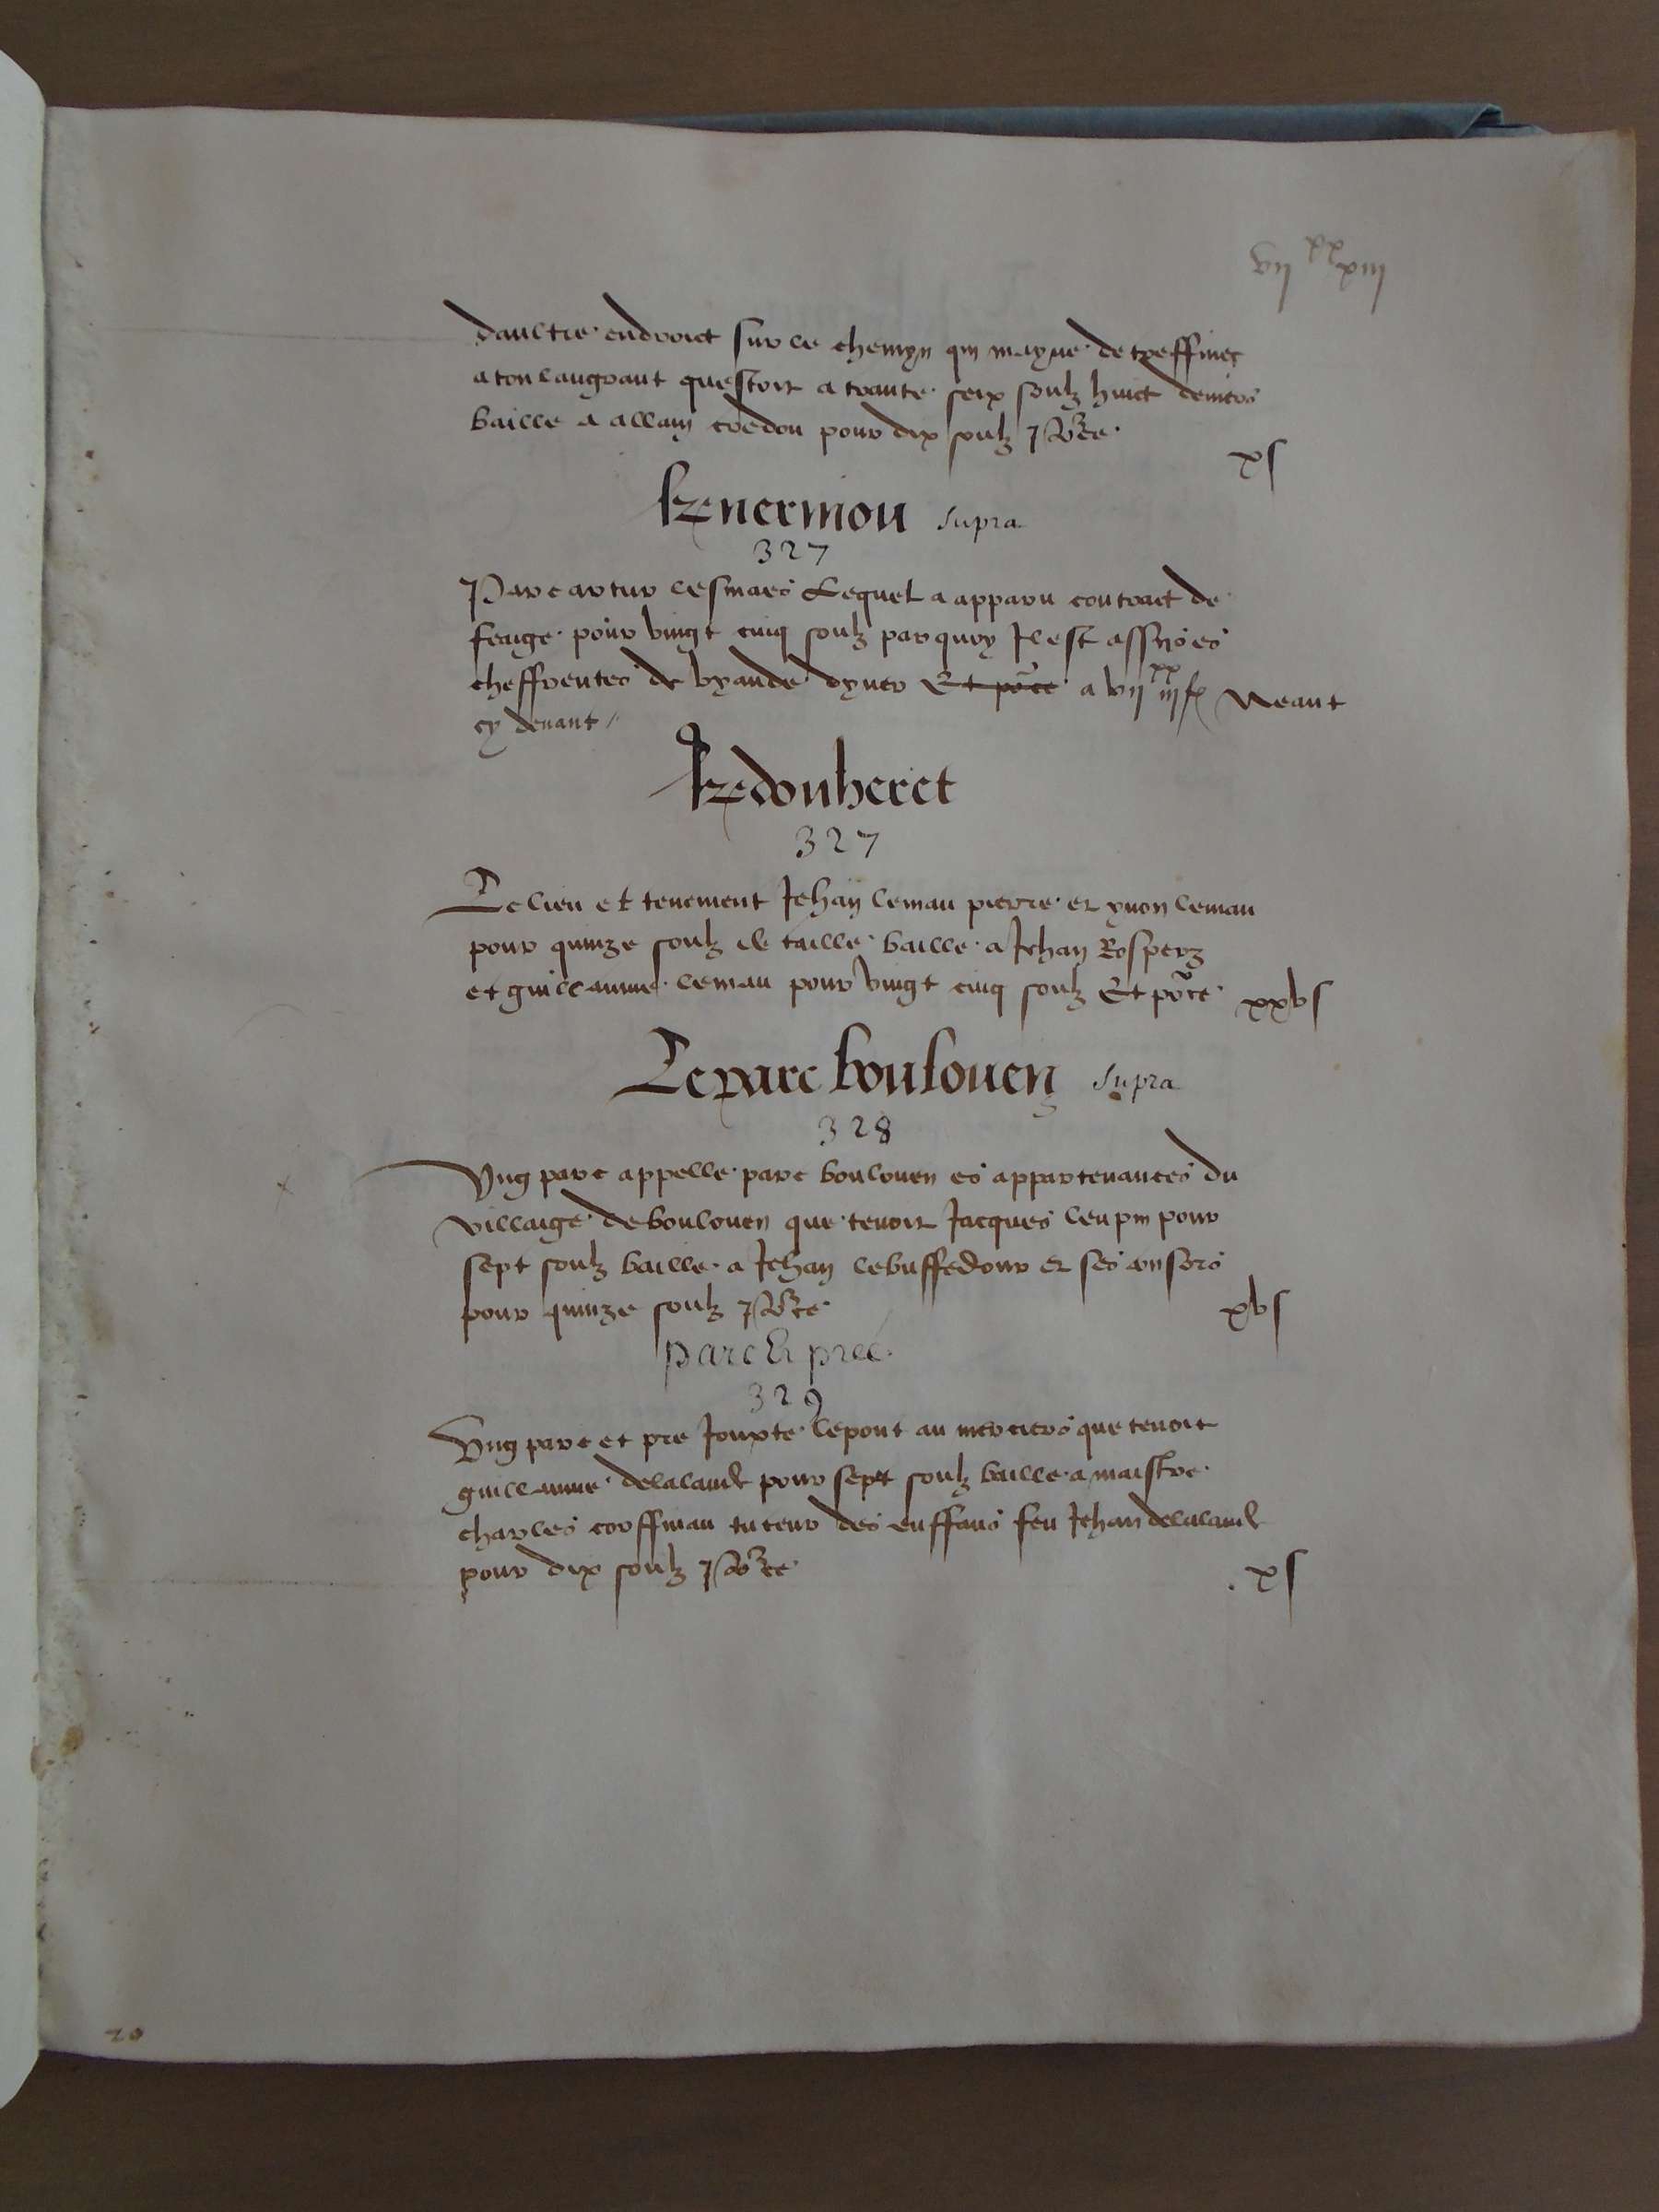 vii xx xiii
daultre endroict sur le chemyn qui mayne de treffinec
a ton langroant questoit a trante seix soulz huict deniers
baille a allain credou pour dix soulz
xs
kenermou supra
327
Parc artur lesmaes Lequel a apparu contract de
feage pour vingt cinq soulz par quoy Il est assis es
cheffrentes de vyande dyner Et pource a vii xx iii f Neant
cy devant //
kerdonheret
327
Le lieu et tenement Jehan leman pierre et yvon leman
pour quinze soulz de taille baille a Jehan Rosperz
et guillaume leman pour vingt cinq soulz Et pource xxvs
Le parc boulouen supra
328
Ung parc appelle parc boulouen es appartenances du
villaige de boulouen que tenoit Jacques leupin pour
sept soulz baille a Jehan lebuffedour et ses consors
pour quinze soulz
xvs
parc Et pree
329
Ung parc et pre Jouxte le pont au merciers que tenoit
guillaume delalande pour sept soulz baille a maistre
charles coffman tuteur des enffans feu Jehan delalande
pour dix soulz
xs
20